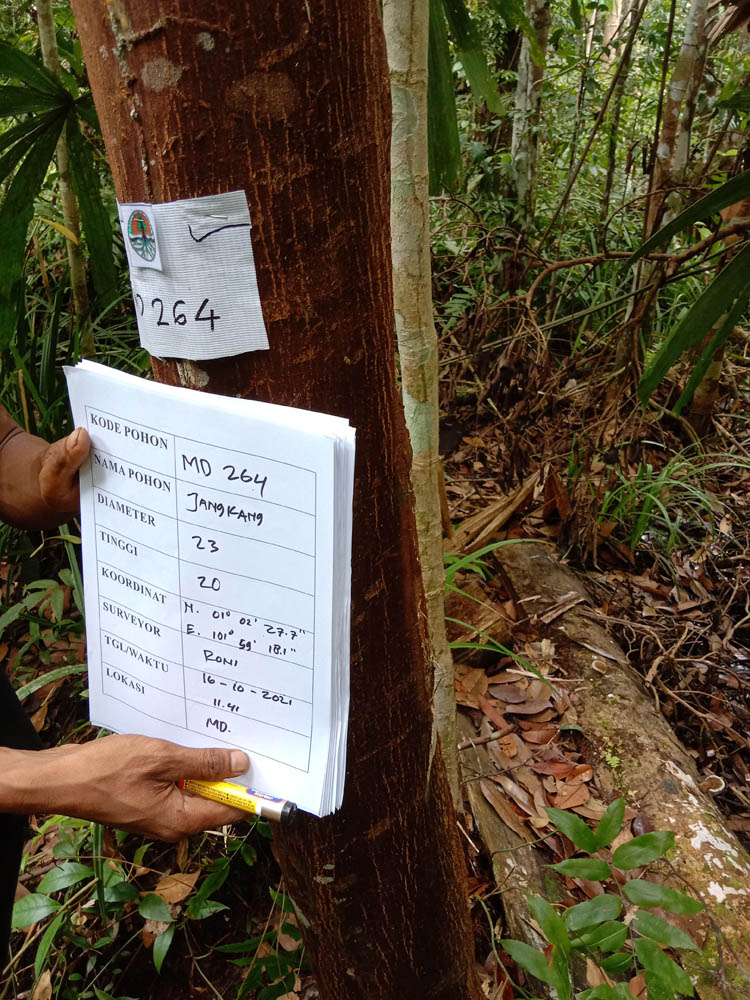 D 264
KODE POHON MD 264
NAMA POHON JANGKANG
DIAMETER 23
TINGGI 20
KOORDINAT N. 01° 02' 27.7"
E. 101° 59' 18.1"
SURVEYOR RONI
TGL/WAKTU 16-10-2021
11.41
LOKASI MD.